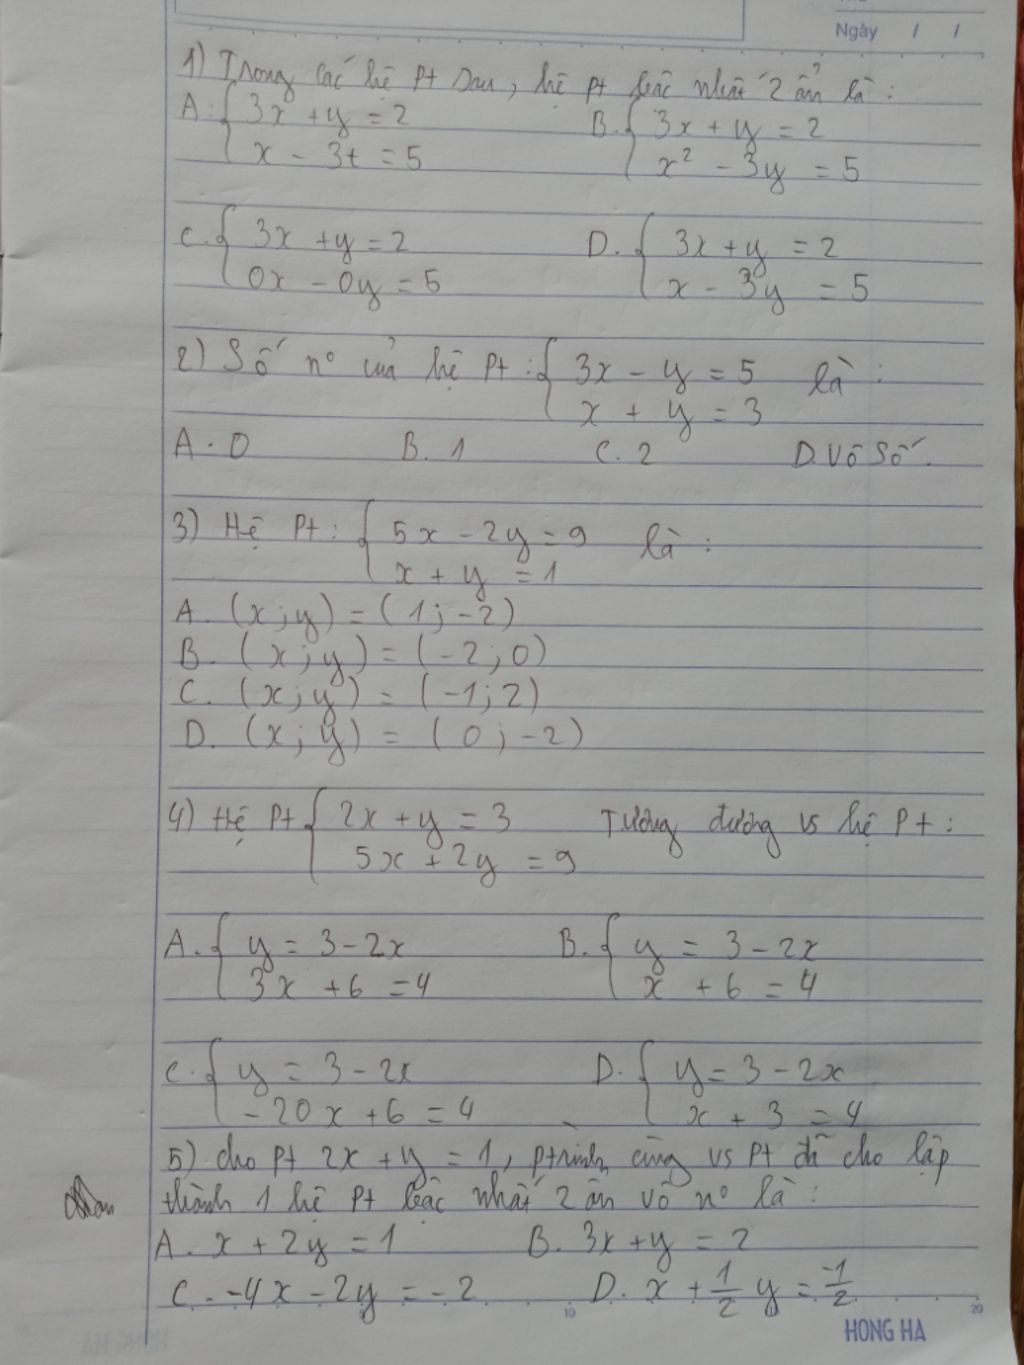 Ngày / /
1) Trong các hệ pt sau, hệ pt bậc nhất 2 ẩn là :
A. { 3x + y = 2 B. { 3x + y = 2
x - 3t = 5 x² - 3y = 5
C. { 3x + y = 2 D. { 3x + y = 2
0x - 0y = 5 x - 3y = 5
2) Số nº của hệ pt : { 3x - y = 5 là :
x + y = 3
A. 0 B. 1 C. 2 D. Vô số.
3) Hệ pt : { 5x - 2y = 9 là :
x + y = 1
A. (x ; y) = (1 ; -2)
B. (x ; y) = (-2 ; 0)
C. (x ; y) = (-1 ; 2)
D. (x ; y) = (0 ; -2)
4) Hệ pt { 2x + y = 3 Tương đương vs hệ pt :
5x + 2y = 9
A. { y = 3 - 2x B. { y = 3 - 2x
3x + 6 = 4 x + 6 = 4
C. { y = 3 - 2x D. { y = 3 - 2x
-20x + 6 = 4 x + 3 = 4
5) cho pt 2x + y = 1, ptrình cùng vs pt đã cho lập
thành 1 hệ pt bậc nhất 2 ẩn vô nº là :
A. x + 2y = 1 B. 3x + y = 2
C. -4x - 2y = -2 D. x + 1/2 y = -1/2
10 20
HONG HA